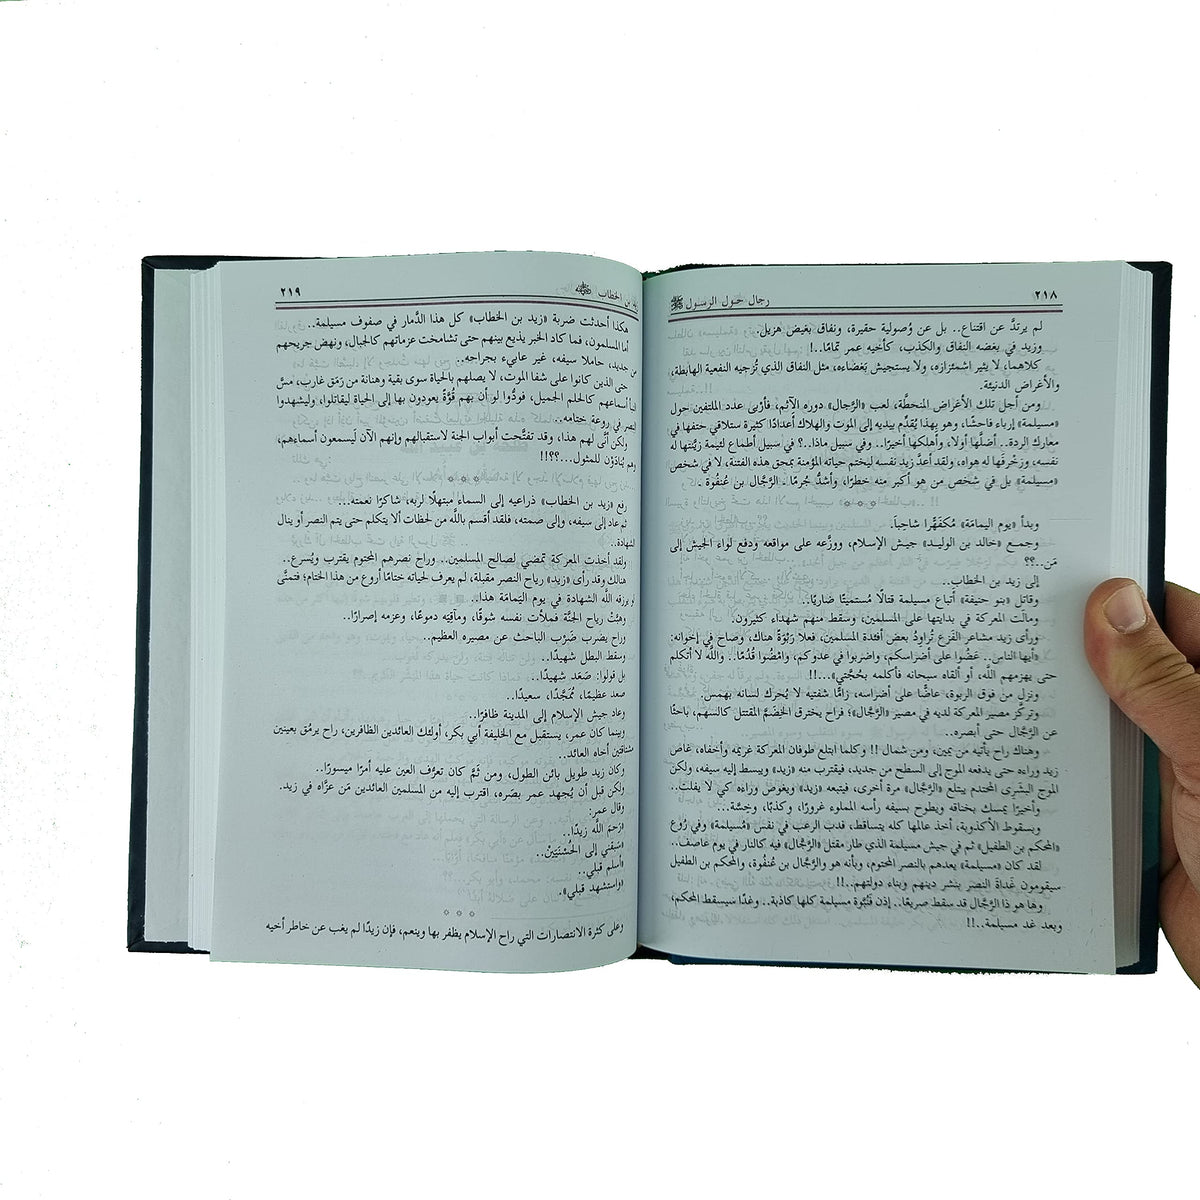 ٢١٨
رجال حول الرسول ﷺ
لم يرتدَّ عن اقتناع.. بل عن وُصولية حقيرة، ونفاق بغيض هزيل.
وزيد في بغضه النفاق والكذب، كأخيه عمر تمامًا..!
كلاهما، لا يثير اشمئزازه، ولا يستجيش بَغضَاءه، مثل النفاق الذي تُزجيه النفعية الهابطة،
والأغراض الدنيئة.
ومن أجل تلك الأغراض المنحطَّة، لعب «الرَّجال» دوره الآثم، فأربى عدد الملتفين حول
«مسيلمة» إرباء فاحشًا، وهو بهذا يُقدِّم بيديه إلى الموت والهلاك أعدادًا كثيرة ستلاقي حتفها في
معارك الردة.. أضلَّها أولا، وأهلكها أخيرًا.. وفي سبيل ماذا..؟ في سبيل أطماع لئيمة زيَّنتها له
نفسه، وزَخْرفَها له هواه، ولقد أعدَّ زيد نفسه ليختم حياته المؤمنة بمحق هذه الفتنة، لا في شخص
«مسيلمة» بل في شخص من هو أكبر منه خطرًا، وأشدُّ جُرمًا . الرَّجال بن عُنفُوة .
وبدأ «يوم اليمامة» مُكفَهِرًا شاحِبًا.
وجمع «خالد بن الوليد» جيش الإسلام، ووزَّعه على مواقعه ودفع لواء الجيش إلى
مَن..؟؟
إلى زيد بن الخطاب..
وقاتل «بنو حنيفة» أتباع مسيلمة قتالًا مُستميتًا ضاريًا..
ومالت المعركة في بدايتها على المسلمين، وسقط منهم شهداء كثيرون.
ورأى زيد مشاعر الفَزع تُراودُ بعض أفئدة المسلمين، فعلا رَبْوَةً هناك، وصاح في إخوانه:
«أيها الناس.. عَضُّوا على أضراسكم، واضربوا في عدوكم، وامْضُوا قُدُمًا.. واللَّه لا أتكلم
حتى يهزمهم اللَّه، أو ألقاه سبحانه فأكلمه بحُجَّتي»..!!
ونزل من فوق الربوة، عاضًّا على أضراسه، زامًّا شفتيه لا يُحرك لسانه بهمْس.
وتركَّز مصير المعركة لديه في مصير «الرَّجَّال»؛ فراح يخترق الخِضَمَّ المقتتل كالسهم، باحثًا
عن الرَّجَّال حتى أبصره..
وهناك راح يأتيه من يمين، ومن شمال !! وكلما ابتلع طوفان المعركة غريمه وأخفاه، غاص
زيد وراءه حتى يدفعه الموج إلى السطح من جديد، فيقترب منه «زيد» ويبسط إليه سيفه، ولكن
الموج البشَرى المحتدم يبتلع «الرَّجَّال» مرة أخرى، فيتبعه «زيد» ويغوص وراءه كي لا يفلت..
وأخيرًا يمسك بخناقه ويطوح بسيفه رأسه المملوء غرورًا، وكذبًا، وخِسَّة...
وبسقوط الأكذوبة، أخذ عالمها كله يتساقط، فدب الرعب في نفس «مُسيلمة» وفي رُوع
«المحكم بن الطفيل» ثم في جيش مسيلمة الذي طار مقتل «الرَّجَّال» فيه كالنار في يوم عاصف..
لقد كان «مسيلمة» يعدهم بالنصر المحتوم، وبأنه هو والرَّجَّال بن عُنفُوة، والمحكم بن الطفيل
سيقومون غَداةَ النصر بنشر دينهم وبناء دولتهم..!!
وها هو ذا الرَّجال قد سقط صريعًا.. إذن فنُبُوة مسيلمة كلها كاذبة.. وغدًا سيسقط المحكم،
وبعد غد مسيلمة..!!
٢١٩
زيد بن الخطاب
هكذا أحدثت ضربة «زيد بن الخطاب» كل هذا الدَّمار في صفوف مسيلمة..
أما المسلمون، فما كاد الخبر يذيع بينهم حتى تشامخت عزماتهم كالجبال، ونهض جريحهم
من جديد، حاملا سيفه، غير عابىء بجراحه..
حتى الذين كانوا على شفا الموت، لا يصلهم بالحياة سوى بقية وهنانة من رَمَق غارب، مسَّ
أسماعهم كالحلم الجميل، فودُّوا لو أن بهم قُوَّةً يعودون بها إلى الحياة ليقاتلوا، وليشهدوا
النصر في روعة ختامه..
ولكن أنَّى لهم هذا، وقد تفتَّحت أبواب الجنة لاستقبالهم وإنهم الآن لَيسمعون أسماءهم،
وهم يُنادَوْن للمثول...؟؟!!
رفع «زيد بن الخطاب» ذراعيه إلى السماء مبتهلًا لربه، شاكرًا نعمته...
ثم عاد إلى سيفه، وإلى صمته، فلقد أقسم باللَّه من لحظات ألا يتكلم حتى يتم النصر أو ينال
الشهادة..
ولقد أخذت المعركة تمضي لصالح المسلمين.. وراح نصرهم المحتوم يقترب ويُسرع..
هنالك وقد رأى «زيد» رياح النصر مقبلة، لم يعرف لحياته ختامًا أروع من هذا الختام؛ فتمنَّى
لو يرزقه اللَّه الشهادة في يوم اليَمامَة هذا..
وهبَّت رياح الجنَّة فملأت نفسه شوقًا، ومآقيَه دموعًا، وعزمه إصرارًا..
وراح يضرب ضَرْب الباحث عن مصيره العظيم..
وسقط البطل شهيدًا..
بل قولوا: صَعَد شهيدًا..
صعد عظيمًا، مُمَجَّدًا، سعيدًا..
وعاد جيش الإسلام إلى المدينة ظافرًا..
وبينما كان عمر، يستقبل مع الخليفة أبي بكر، أولئك العائدين الظافرين، راح يرمُق بعينين
مشتاقتين أخاه العائد..
وكان زيد طويل بائن الطول، ومن ثَمَّ كان تعرُّف العين عليه أمرًا ميسورًا..
ولكن قبل أن يُجهد عمر بصَره، اقترب إليه من المسلمين العائدين مَن عزَّاه في زيد.
وقال عمر:
«رَحِمَ اللَّه زيدًا..
«سَبقَني إلى الحُسْنَيَيْن..
«أسلم قبلي..
«واستشهد قبلي».
وعلى كثرة الانتصارات التي راح الإسلام يظفر بها وينعم، فإن زيدًا لم يغب عن خاطر أخيه